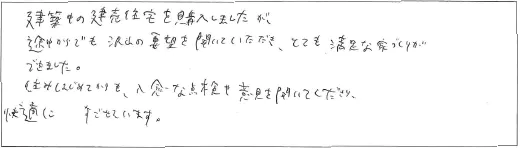 建築中の建売住宅を購入しましたが、
途中からでも沢山の要望を聞いていただき、とても満足な家づくりが
できました。
住みはじめてからも、入念な点検や意見を聞いてくださり、
快適に すごせています。